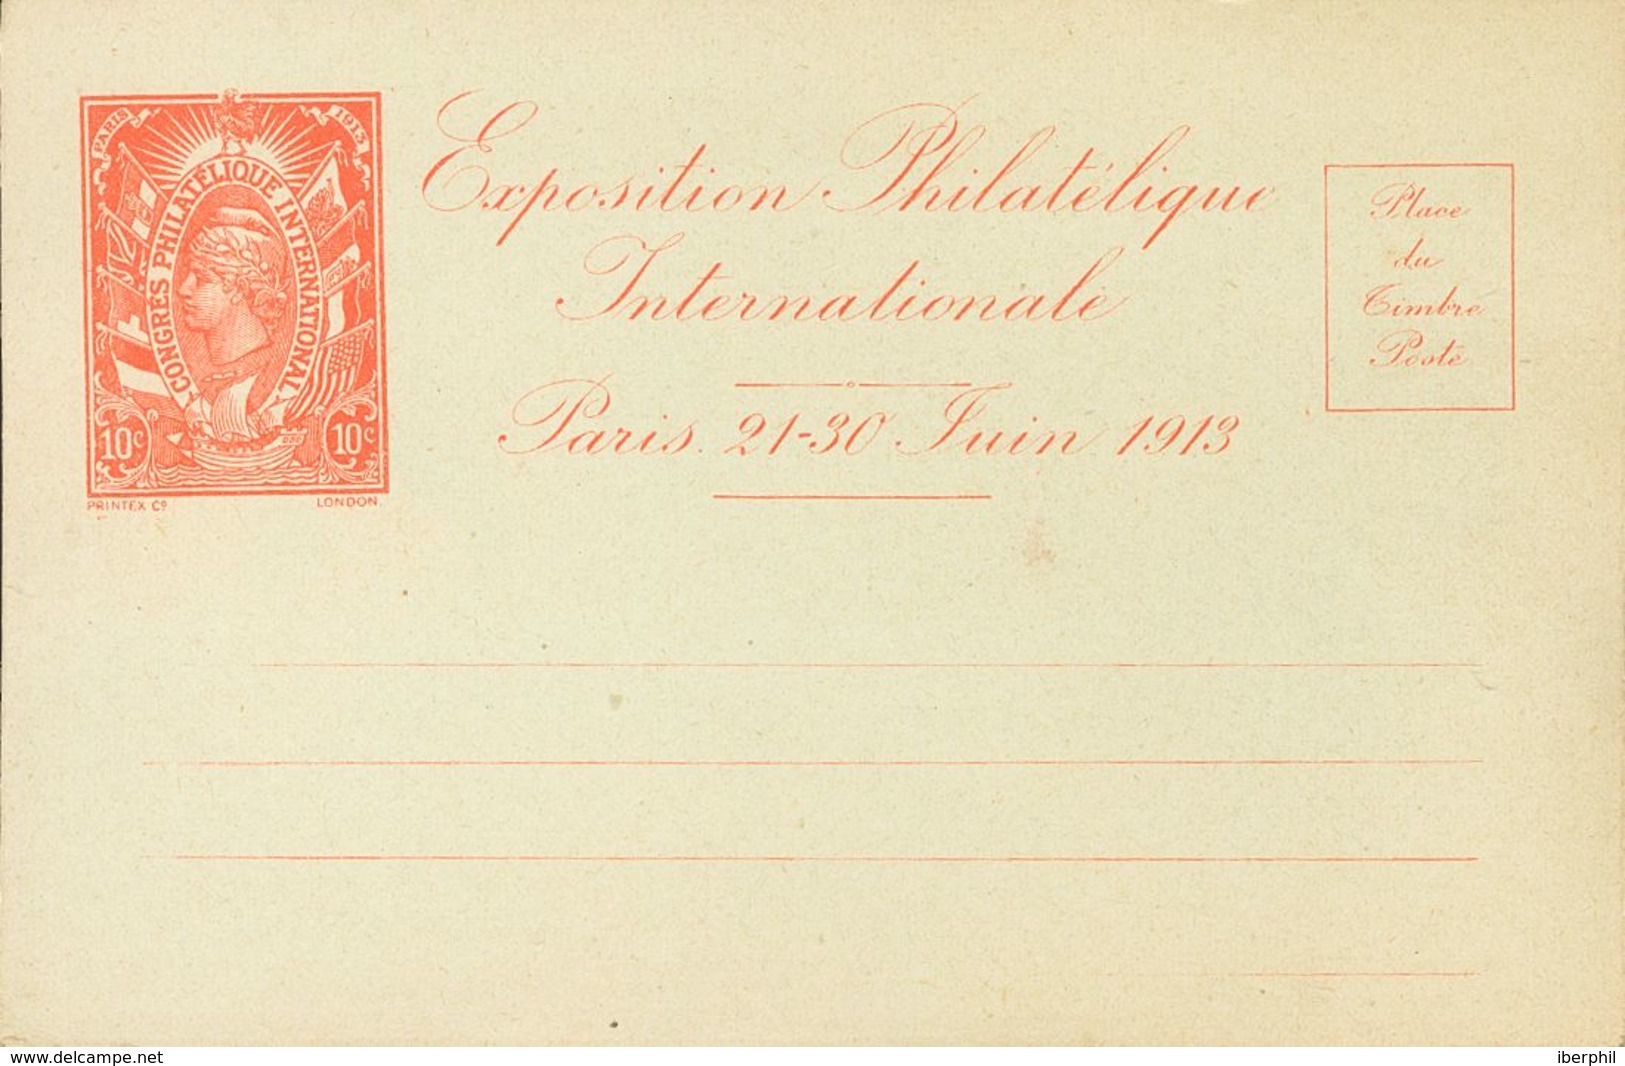 PARIS
1913
CONGRÈS PHILATÉLIQUE INTERNATIONAL
10c
10c
PRINTEX Co
LONDON.
Exposition Philatélique
Internationale
Paris. 21-30 Juin 1913
Place
du
Timbre
Poste
www.delcampe.net
iberphil